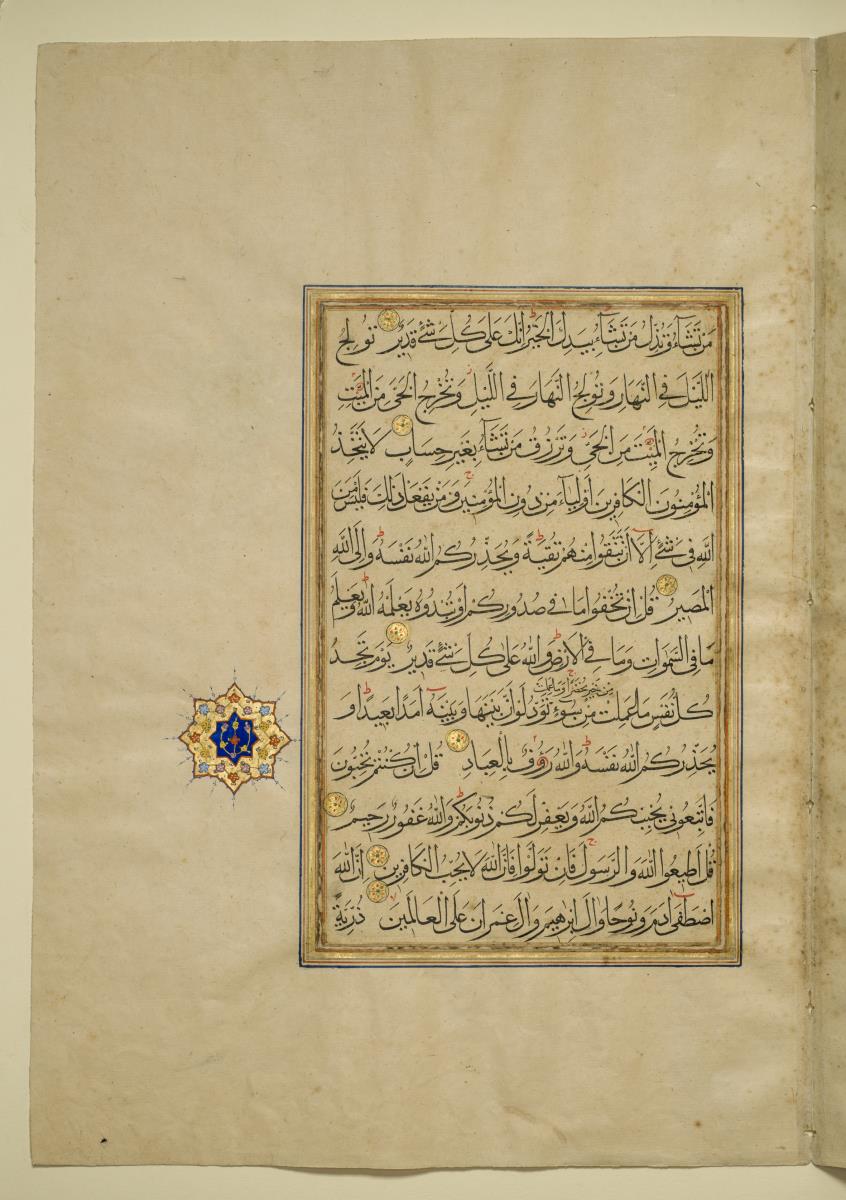 مَنْ تَشَآءُ وَتُذِلُّ مَنْ تَشَآءُ بِيَدِكَ الْخَيْرُ اِنَّكَ عَلٰى كُلِّ شَئٍ قَدِيرٌ تُولِجُ
اللَّيْلَ فِي النَّهَارِ وَتُولِجُ النَّهَارَ فِي اللَّيْلِ وَتُخْرِجُ الْحَيَّ مِنَ الْمَيِّتِ
وَتُخْرِجُ الْمَيِّتَ مِنَ الْحَيِّ وَتَرْزُقُ مَنْ تَشَآءُ بِغَيْرِ حِسَابٍ لَا يَتَّخِذُ
الْمُؤْمِنُونَ الْكَافِرِينَ اَوْلِيَآءَ مِنْ دُونِ الْمُؤْمِنِينَ وَمَنْ يَفْعَلْ ذٰلِكَ فَلَيْسَ مِنَ
اللّٰهِ فِي شَئٍ اِلَّا اَنْ تَتَّقُوا مِنْهُمْ تَقِيَّةً وَيُحَذِّرُكُمُ اللّٰهُ نَفْسَهُ وَاِلَى اللّٰهِ
الْمَصِيرُ قُلْ اِنْ تُخْفُوا مَا فِي صُدُورِكُمْ اَوْ تُبْدُوهُ يَعْلَمْهُ اللّٰهُ وَيَعْلَمُ
مَا فِي السَّمٰوَاتِ وَمَا فِي الْاَرْضِ وَاللّٰهُ عَلٰى كُلِّ شَئٍ قَدِيرٌ يَوْمَ تَجِدُ
مِنْ خَيْرٍ مُحْضَرًا وَمَا عَمِلَتْ
كُلُّ نَفْسٍ مَا عَمِلَتْ مِنْ سُوءٍ تَوَدُّ لَوْ اَنَّ بَيْنَهَا وَبَيْنَهُ اَمَدًا بَعِيدًا وَ
يُحَذِّرُكُمُ اللّٰهُ نَفْسَهُ وَاللّٰهُ رَؤُفٌ بِالْعِبَادِ قُلْ اِنْ كُنْتُمْ تُحِبُّونَ
فَاتَّبِعُونِي يُحْبِبْكُمُ اللّٰهُ وَيَغْفِرْ لَكُمْ ذُنُوبَكُمْ وَاللّٰهُ غَفُورٌ رَحِيمٌ
قُلْ اَطِيعُوا اللّٰهَ وَالرَّسُولَ فَاِنْ تَوَلَّوْا فَاِنَّ اللّٰهَ لَا يُحِبُّ الْكَافِرِينَ اِنَّ اللّٰهَ
اصْطَفٰى اٰدَمَ وَنُوحًا وَاٰلَ اِبْرٰهِيمَ وَاٰلَ عِمْرَانَ عَلَى الْعَالَمِينَ ذُرِّيَّةً